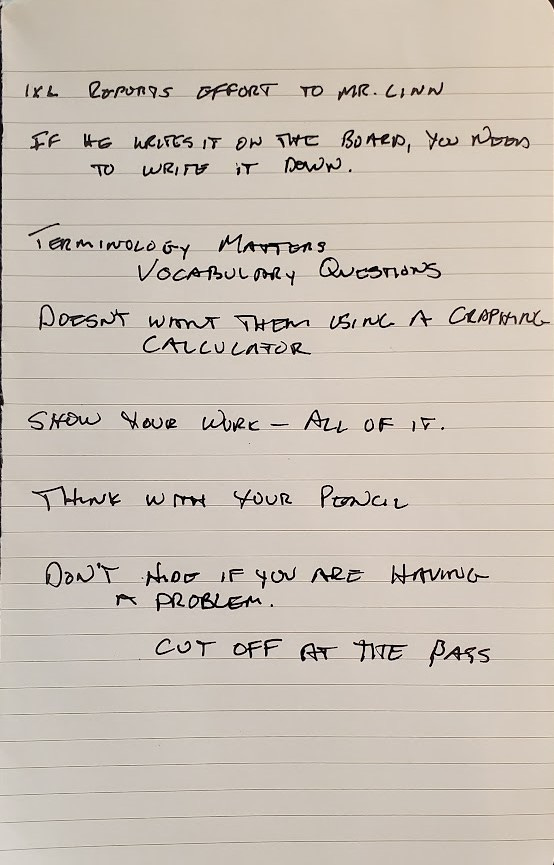 IXL REPORTS EFFORT TO MR. LINN
IF HE WRITES IT ON THE BOARD, YOU NEED
TO WRITE IT DOWN.
TERMINOLOGY MATTERS
VOCABULARY QUESTIONS
DOESN'T WANT THEM USING A GRAPHING
CALCULATOR
SHOW YOUR WORK – ALL OF IT.
THINK WITH YOUR PENCIL
DON'T HIDE IF YOU ARE HAVING
A PROBLEM.
CUT OFF AT THE PASS